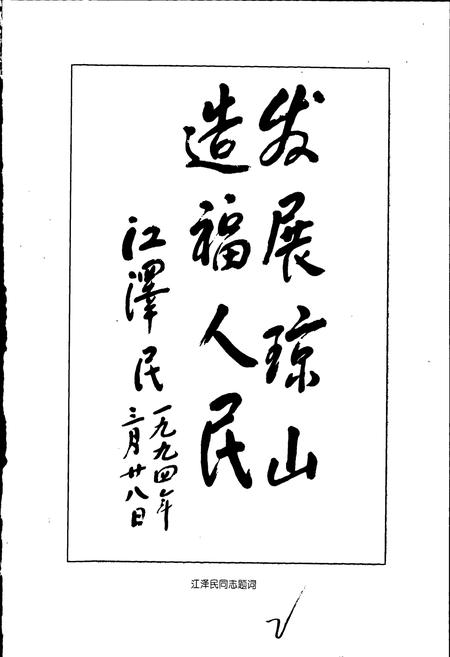 发展琼山
造福人民
江澤民
一九九四年
三月廿八日
江泽民同志题词